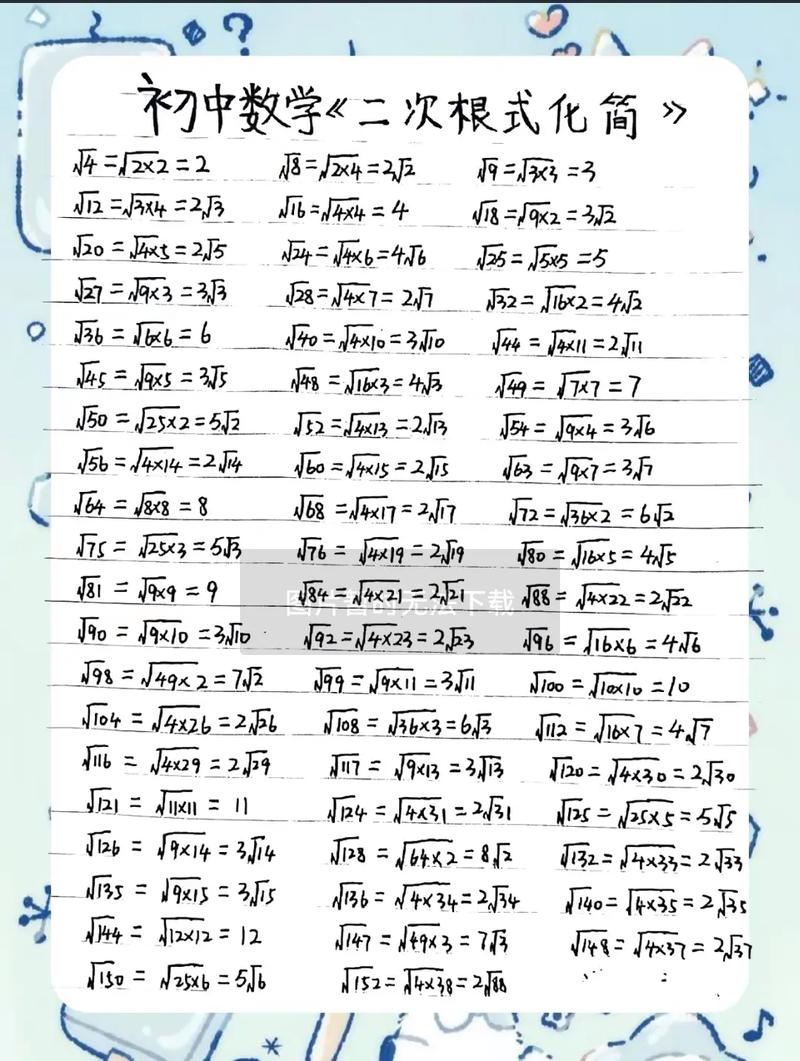 初中数学《二次根式化简》
√4=√2×2=2 √8=√2×4=2√2 √9=√3×3=3
√12=√3×4=2√3 √16=√4×4=4 √18=√9×2=3√2
√20=√4×5=2√5 √24=√4×6=4√6 √25=√5×5=5
√27=√9×3=3√3 √28=√4×7=2√7 √32=√16×2=4√2
√36=√6×6=6 √40=√4×10=3√10 √44=√4×11=2√11
√45=√9×5=3√5 √48=√16×3=4√3 √49=√7×7=7
√50=√25×2=5√2 √52=√4×13=2√13 √54=√9×4=3√6
√56=√4×14=2√14 √60=√4×15=2√15 √63=√9×7=3√7
√64=√8×8=8 √68=√4×17=2√17 √72=√36×2=6√2
√75=√25×3=5√3 √76=√4×19=2√19 √80=√16×5=4√5
√81=√9×9=9 √84=√4×21=2√21 √88=√4×22=2√22
图片暂时无法下载
√90=√9×10=3√10 √92=√4×23=2√23 √96=√16×6=4√6
√98=√49×2=7√2 √99=√9×11=3√11 √100=√10×10=10
√104=√4×26=2√26 √108=√36×3=6√3 √112=√16×7=4√7
√116=√4×29=2√29 √117=√9×13=3√13 √120=√4×30=2√30
√121=√11×11=11 √124=√4×31=2√31 √125=√25×5=5√5
√126=√9×14=3√14 √128=√64×2=8√2 √132=√4×33=2√33
√135=√9×15=3√15 √136=√4×34=2√34 √140=√4×35=2√35
√144=√12×12=12 √147=√49×3=7√3 √148=√4×37=2√37
√150=√25×6=5√6 √152=√4×38=2√88